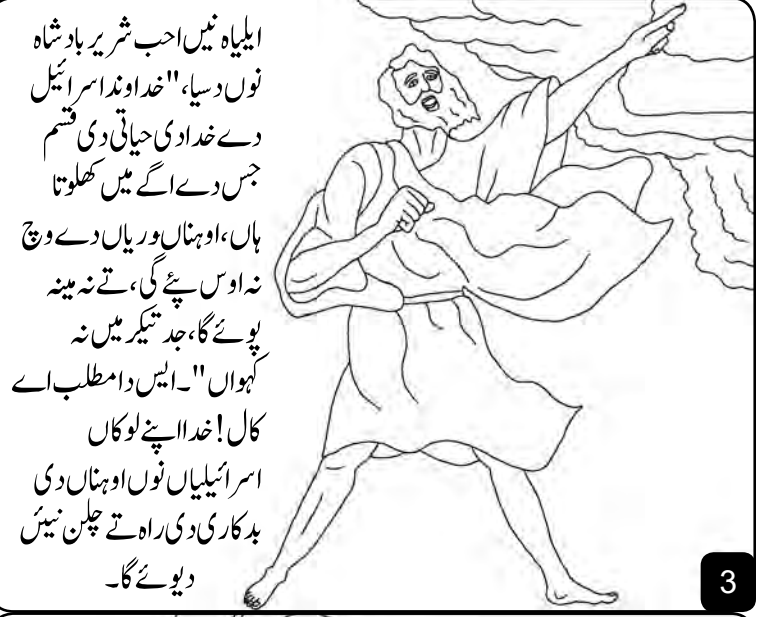 ایلیاہ نیں احب شریر بادشاہ
نوں دسیا، "خداوند اسرائیل
دے خدا دی حیاتی دی قسم
جس دے اگے میں کھلوتا
ہاں، اوہناں وریاں دے وچ
نہ اوس پئے گی، تے نہ مینہ
پوئے گا، جد تیکر میں نہ
کہواں"۔ ایس دا مطلب اے
کال! خدا اپنے لوکاں
اسرائیلیاں نوں اوہناں دی
بدکاری دی راہ تے چلن نیئں
دیوئے گا۔
3